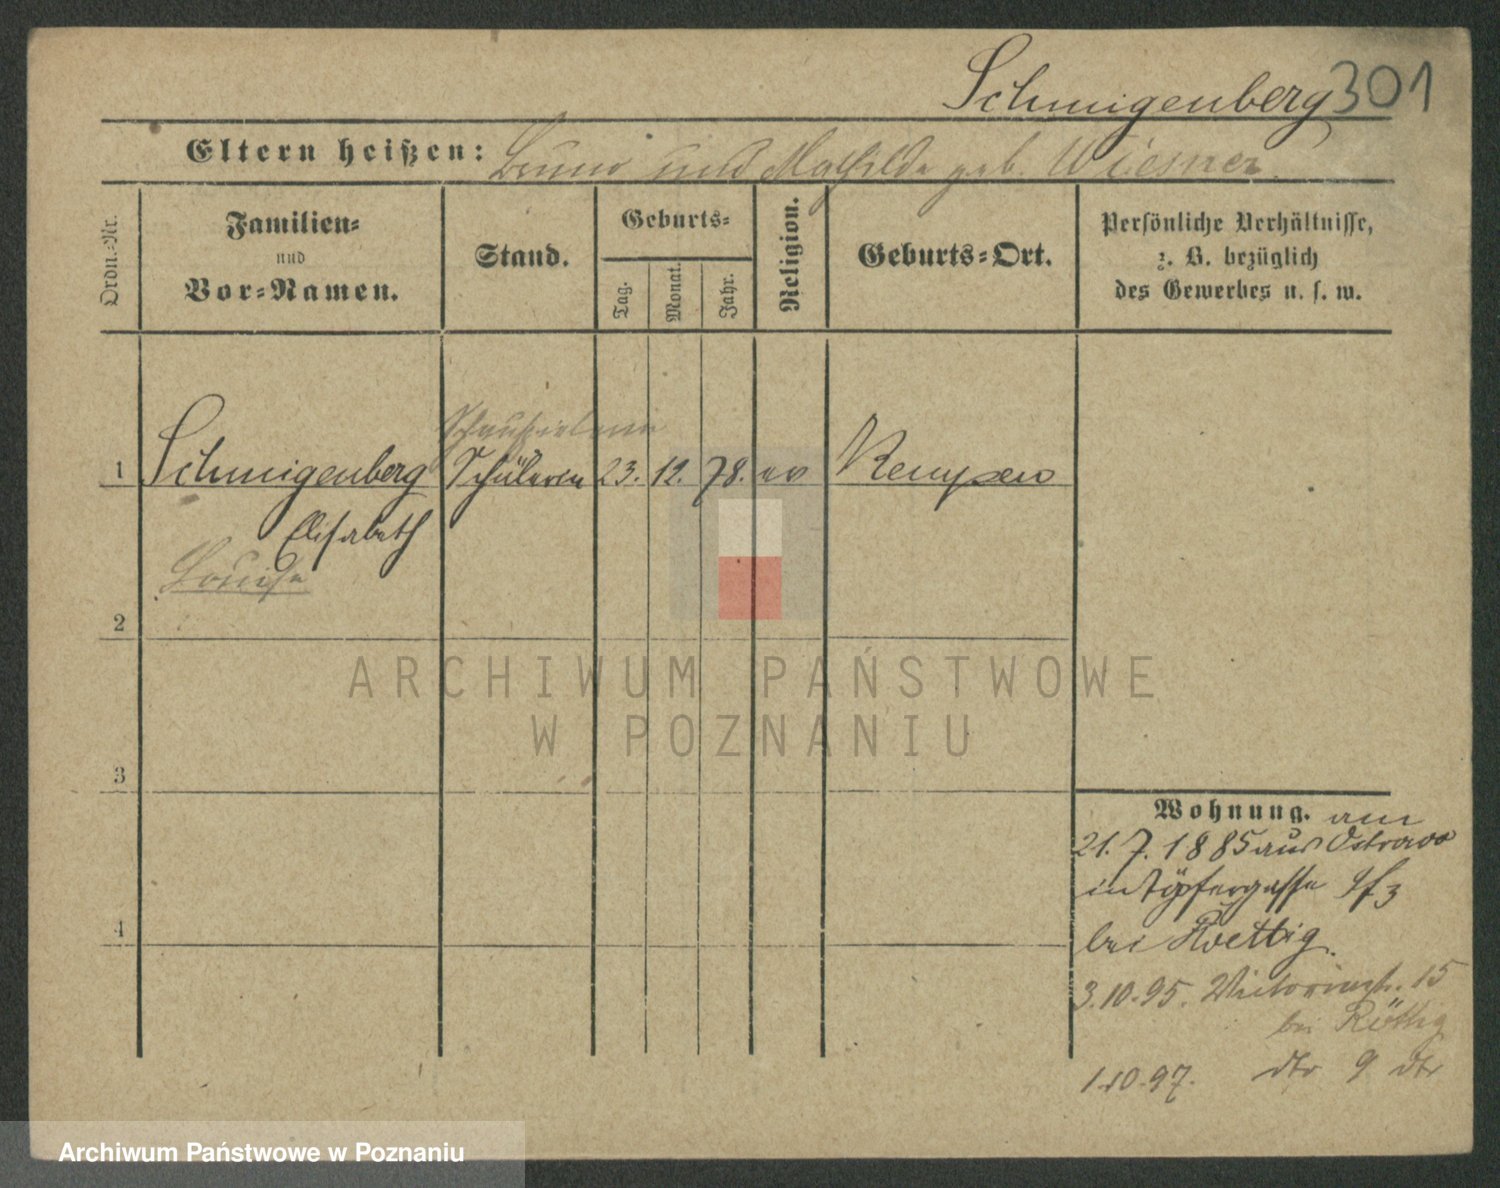 Schmigenberg 301
Eltern heißen: Bruno und Mathilde geb. Wiesner.
Ordn.-Nr.
Familien-
und
Vor-Namen.
Stand.
Geburts-
Tag.
Monat.
Jahr.
Religion.
Geburts-Ort.
Persönliche Verhältnisse,
z. B. bezüglich
des Gewerbes u. s. w.
Schauspielerin
1 Schmigenberg Schülerin 23. 12. 78. ev Kempen
Elisabeth
Louise
2
ARCHIWUM PAŃSTWOWE
W POZNANIU
3
4
Wohnung. am
21. 7. 1885 aus Ostrowo
in Töpfergasse
bei Roettig.
3.10.95. Victoriastr. 15
bei Röttig
1.10.97. dto 9 dto
Archiwum Państwowe w Poznaniu